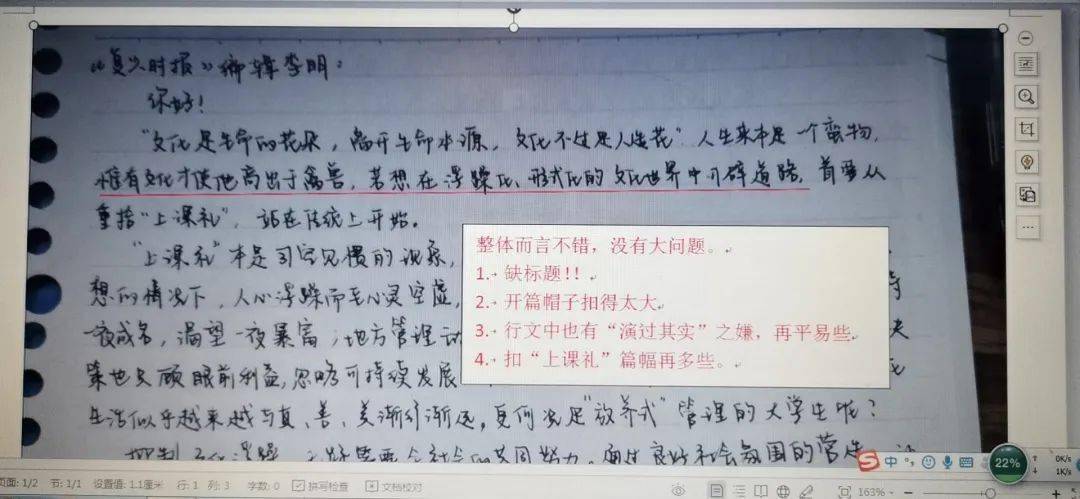 《复兴时报》编辑李明：
你好！
"文化是生命的花朵，离开生命本源，文化不过是人造花"人生来本是一个蛮物，
惟有文化才使他高出于禽兽，若想在浮躁化、形式化的文化世界中开辟道路，首要从
重拾"上课礼"，站在传统上开始。
"上课礼"本是司空见惯的现象，
想的情况下，人心浮躁而至心灵空虚，
一夜成名，渴望一夜暴富；地方管理
策也只顾眼前利益，忽略可持续发展
生活似乎越来越与真、善、美渐行渐远，更何况是"放养式"管理的大学生呢？
整体而言不错，没有大问题。
1. 缺标题！！
2. 开篇帽子扣得太大
3. 行文中也有“演过其实”之嫌，再平易些
4. 扣“上课礼”篇幅再多些。
中
22%
0K/s
1K/s
页面: 1/2 节: 1/1 设置值: 1.1厘米 行: 1 列: 3 字数: 0 拼写检查 文档校对
163%